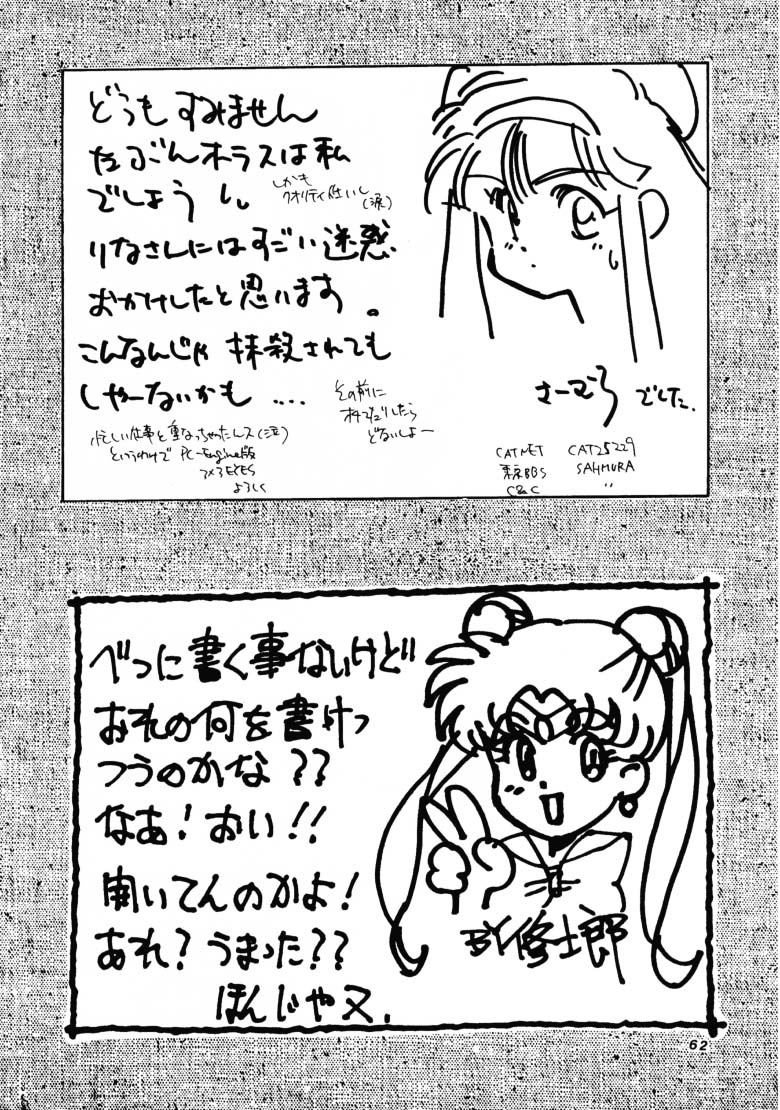 どうもすみません
たぶんオーラスは私
でしょう
しかも
クオリティ低いし
(涙)
りなさんにはすごい迷惑
おかけしたと思います。
こんなんじゃ 抹殺されても
しゃーないかも ....
その前に
どないしよー
忙しい仕事と重なっちゃったんス(泣)
というわけで PC-Engine版
3×3 EYES
よろしく
さーむら でした.
CATNET CAT25229
東京BBS SAHMURA
C&C 〃
べつに書く事ないけど
おれの何を書けっ
つうのかな??
なあ!おい!!
聞いてんのかよ!
あれ?うまった??
ほんじゃ又.
BY修士郎
62